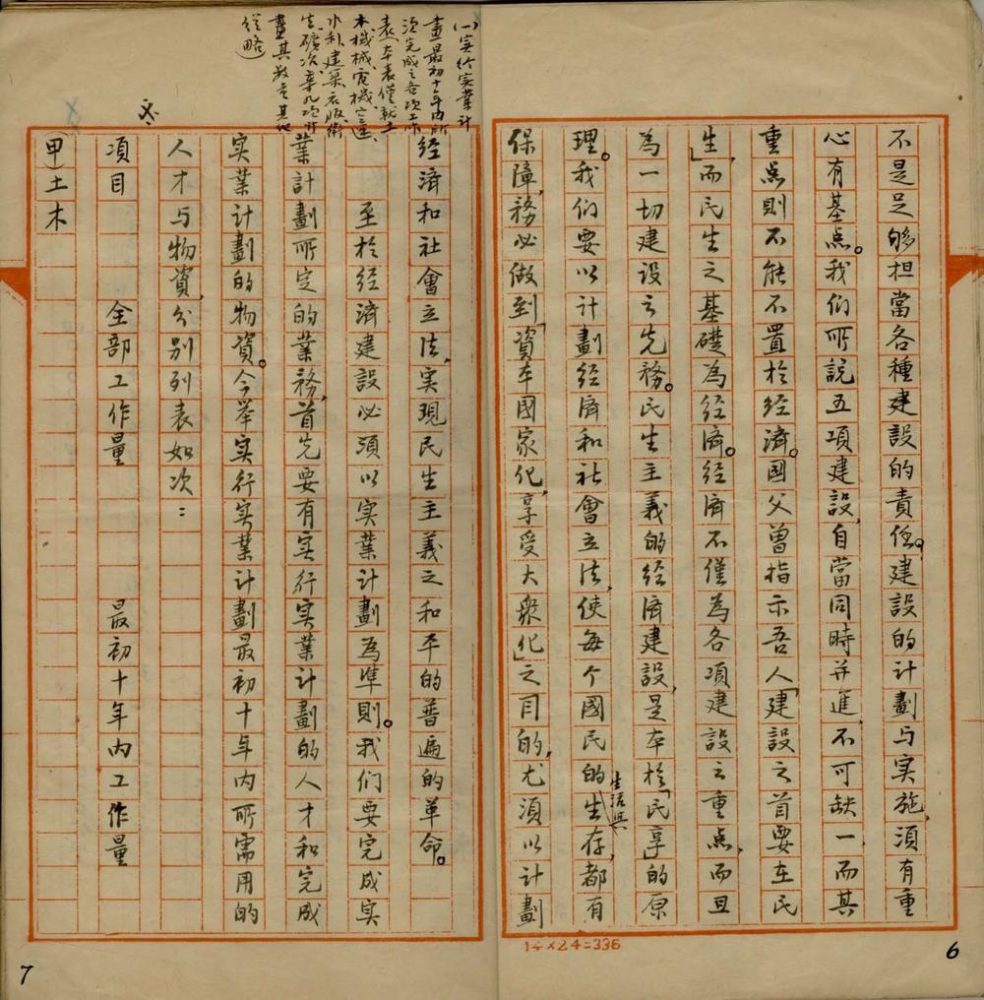 不是足够担當各種建設的責任。建設的計劃与实施，須有重
心有基点。我们所說五項建設，自當同時并進，不可缺一，而其
重点則不能不置於經濟。國父曾指示吾人「建設之首要在民
生」，而民生之基礎為經濟。經濟不僅為各項建設之重点，而且
為一切建設之先務。民生主義的經濟建設，是本於「民享」的原
理。我们要以計劃經濟和社會立法，使每个國民的生存，都有
生活與
保障，務必做到「資本國家化，享受大眾化」之目的，尤須以計劃
14×24=336
6
(一)实行实業計
畫最初十年內所
須完成之各項工作
表(本表僅就土
木、機械、電機、空運、
水利、建築、衣服、衛
生、礦冶等九項計
畫其数字其他
從略)
經濟和社會立法，实現民生主義之和平的普遍的革命。
至於經濟建設必須以实業計劃為準則。我们要完成实
業計劃所定的業務，首先要有实行实業計劃的人才和完成
实業計劃的物資。今举实行实業計劃最初十年内所需用的
人才与物資，分别列表如次：
項目 全部工作量 最初十年内工作量
甲)土木
7